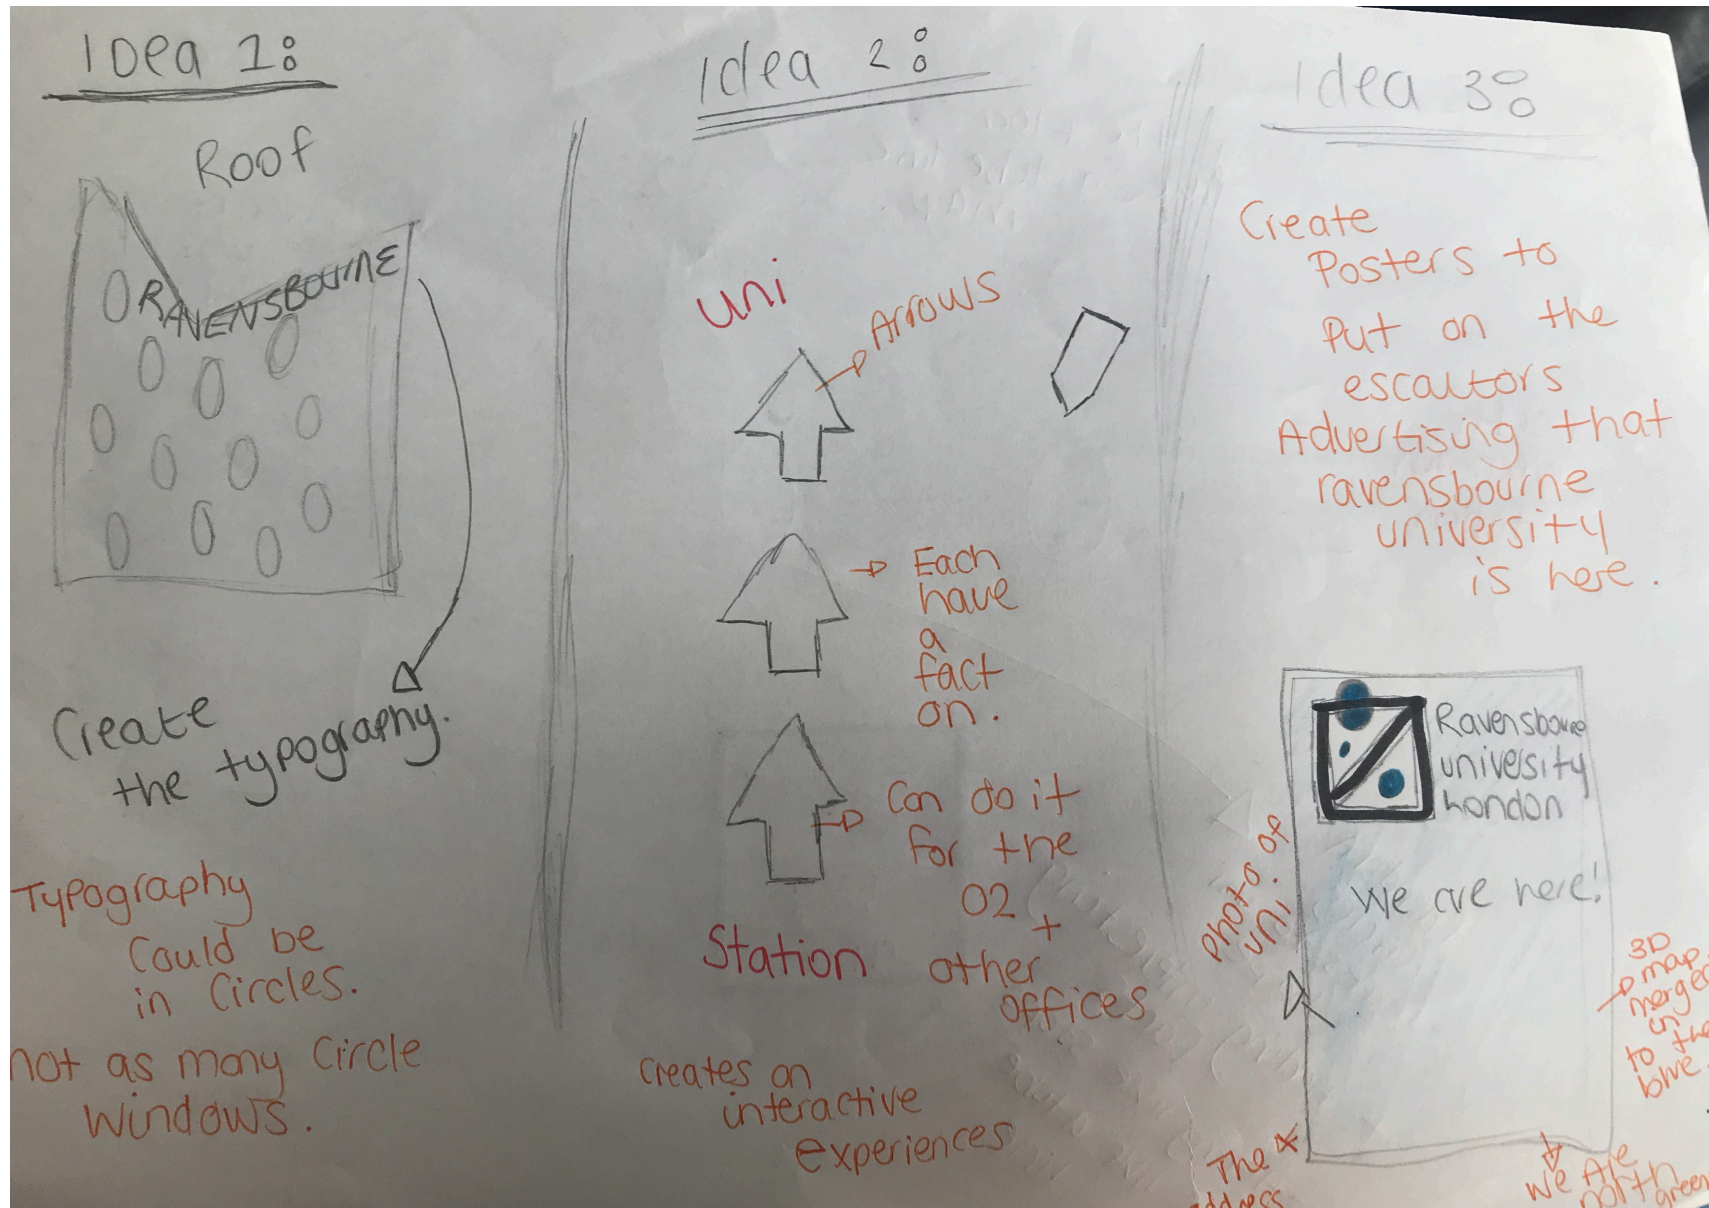 Idea 1:
Roof
RAVENSBOURNE
Create
the typography.
Typography
Could be
in Circles.
not as many Circle
Windows.
Idea 2:
uni
Arrows
Each
have
a
fact
on.
Can do it
for the
O2 +
other
offices
Station
Creates an
interactive
experiences
Idea 3:
Create
Posters to
Put on the
escaltors
Advertising that
ravensbourne
university
is here.
Ravensbourne
university
London
We are here!
Photo of
uni.
3D
map
merged
in
to the
blue.
The
address
We Are
north
green